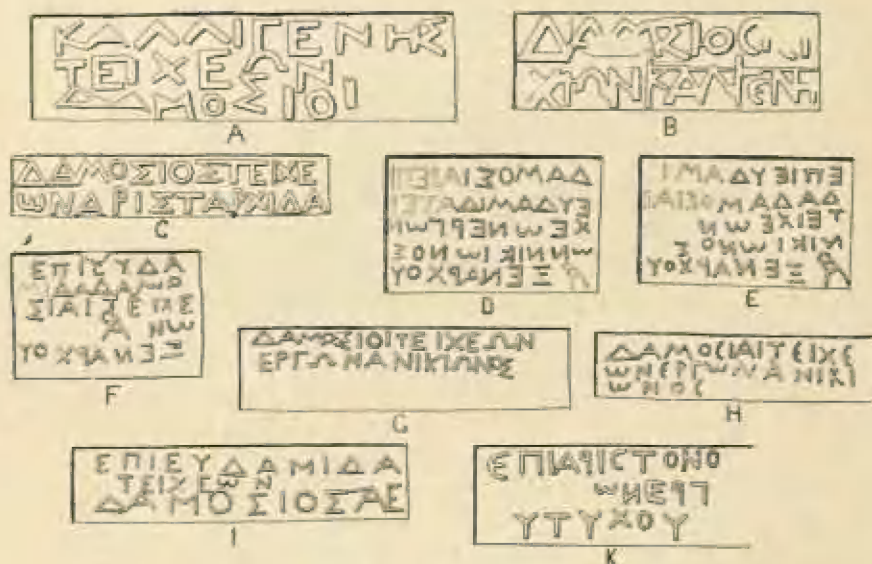 ΚΑΛΛΙΓΕΝΗΣ
ΤΕΙΧΕΩΝ
ΔΑΜΟΣΙΟΙ
A
ΔΑΜΟΣΙΟC
ΧΩΝΚΑΛΙΓΕΝΗ
B
ΔΑΜΟΣΙΟΣΤΕΙΧΕ
ΩΝΑΡΙΣΤΑΡΧΙΔΑ
C
ΔΑΜΟΣΙΑΙΕΠΙ
ΕΥΔΑΜΙΔΑΤΕΙ
ΧΕΩΝΕΡΓΩΝ
ΩΝΝΙΚΙΩΝΟΣ
Α ΞΕΝΑΡΧΟΥ
D
ΕΠΙΕΥΔΑΜΙ
ΔΑΔΑΜΟΣΙΑΙ
ΤΕΙΧΕΩΝ
ΝΙΚΙΩΝΟΣ
Α ΞΕΝΑΡΧΟΥ
E
ΕΠΙΕΥΔΑ
ΣΙΑΙΤΕΙΧΕ
ΩΝ Α
ΞΕΝΑΡΧΟΥ
F
ΔΑΜΟΣΙΟΙΤΕΙΧΕΩΝ
ΕΡΓΩΝΑΝΙΚΙΩΝΟΣ
G
ΔΑΜΟCΙΑΙΤΕΙΧΕ
ΩΝΕΡΓΩΝΑΝΙΚΙ
ΩΝΟC
H
ΕΠΙΕΥΔΑΜΙΔΑ
ΤΕΙΧΕΩΝ
ΔΑΜΟΣΙΟΣΑΕ
I
ΕΠΙΑΡΙCΤΟΝΟ
ΥΤΥΧΟΥ
K